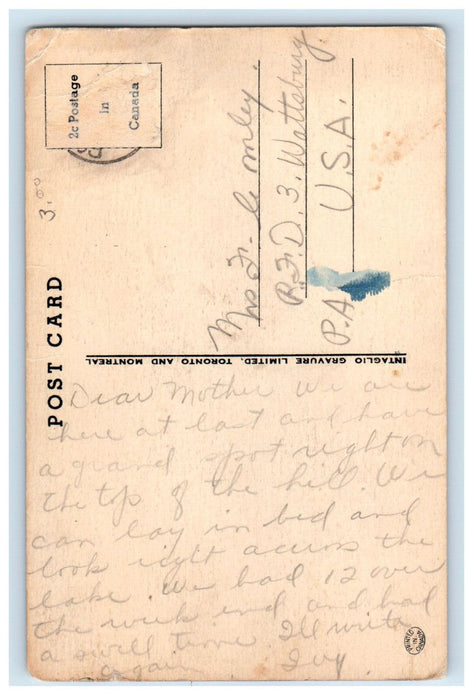 POST CARD
2c Postage
in
Canada
3.00
Mrs Fr.
R.F.D. 3. Wattsburg.
P.A U.S.A.
INTAGLIO GRAVURE LIMITED, TORONTO AND MONTREAL
Dear Mother We are
here at last and have
a grand spot right on
the top of the hill. We
can lay in bed and
look right accross the
lake. We had 12 over
the week end and had
a swell time. Ill write
again Ivy
PRINTED
IN
CANADA